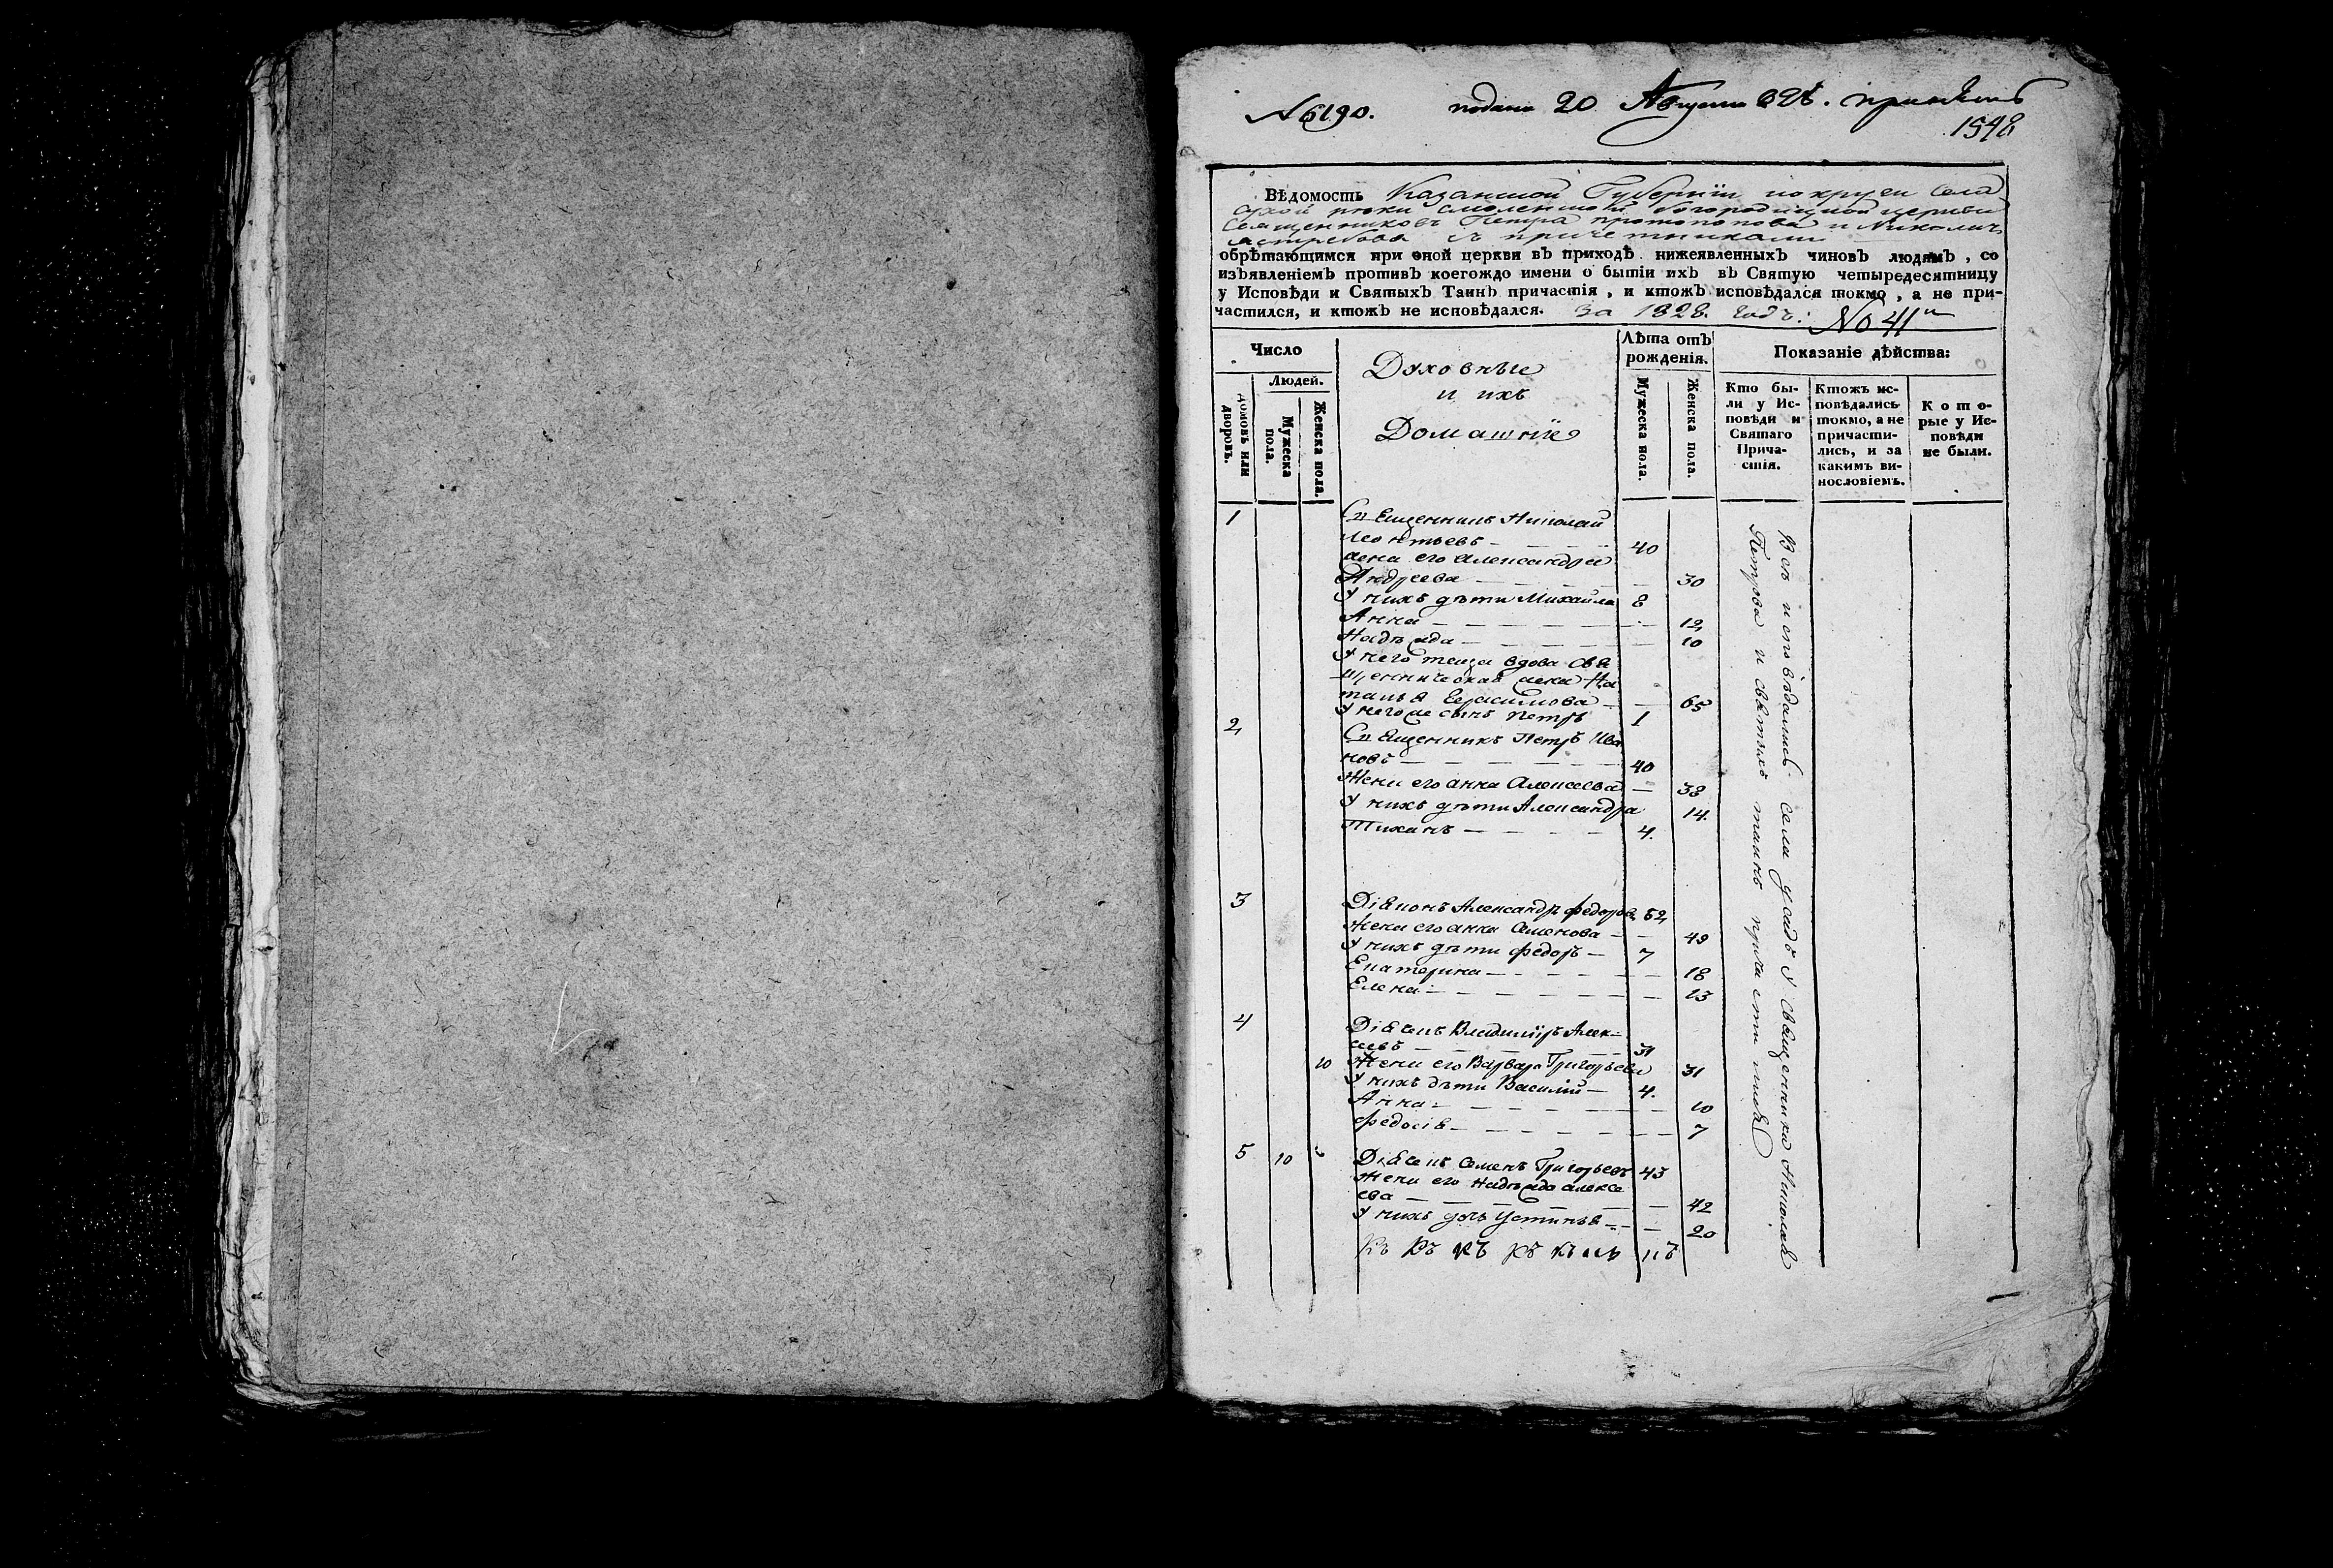 № 6190. подано 20 Августа 828. приметъ
1548
Вѣдомость Казанской Губерніи округи Села
Сухой рѣки Смоленской Богородицкой церкви
Священниковъ Петра Протопопова и Николая
Ястребова съ причетниками
обрѣтающимся при оной церкви въ приходѣ нижеявленныхъ чиновъ людямъ, со
изъявленіемъ противъ коегождо имени о бытіи ихъ въ Святую четыредесятницу
у Исповѣди и Святыхъ Таинъ причастія, и ктожъ исповѣдался токмо, а не при-
частился, и ктожъ не исповѣдался. За 1828 годъ: № 41й
Число
Людей.
домовъ или дворовъ.
Мужеска пола.
Женска пола.
Духовные
и ихъ
Домашніе
Лѣта отъ
рожденія.
Мужеска пола.
Женска пола.
Показаніе дѣйства:
Кто бы-
ли у Ис-
повѣди и
Святаго
Прича-
стія.
Ктожъ ис-
повѣдались
токмо, а не
причасти-
лись, и за
какимъ ви-
нословіемъ.
Кото-
рые у Ис-
повѣди
не были.
1 Священникъ Николай
Леонтьевъ — 40
жена его Александра
Андреева — 30
У нихъ дѣти Михайла 8
Анна — 12
Надежда — 10
У него теща вдова свя
щенническая жена На
талья Герасимова — 65
У него же сынъ Петръ 1
2 Священникъ Петръ Ива
новъ — 40
Жена его Анна Алексеева — 38
У нихъ дѣти Александра 14.
Тиханъ — 4.
3 Діяконъ Александръ Федоровъ 52
Жена его Анна Семенова — 49
У нихъ дѣти Федоръ — 7
Екатерина — 18
Елена — 13
4 Дїячекъ Владимїръ Алек-
сеевъ — 31
10 Жена его Варвара Григорьева 31
У нихъ дѣти Василїй — 4.
Анна — 10
Федосія — 7
5 10 Діячекъ Семенъ Григорьевъ 43
Жена его Надежда Алексе
ева — 42
У нихъ дочь Устинья — 20
Всѣ исповѣдались села усадъ У Священника Николая
Петрова и святыхъ таинъ причастились